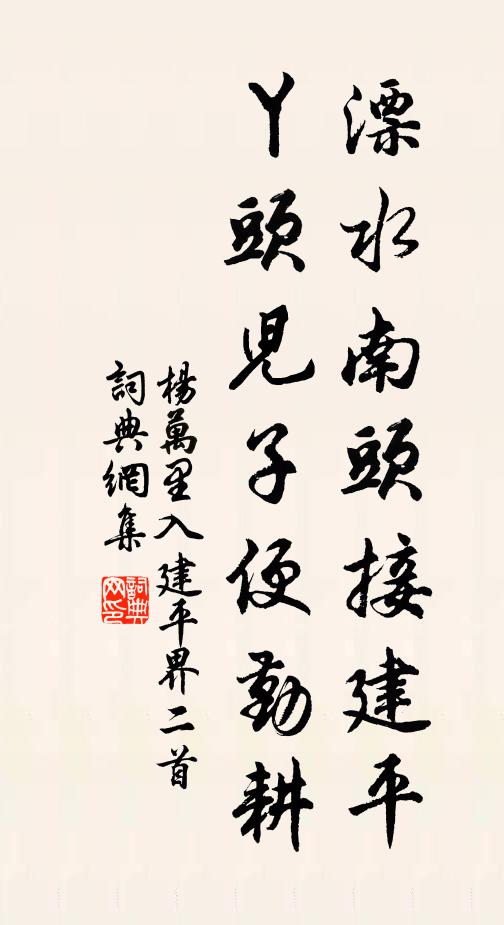 漂水南頭接建平
丫頭児子便勤耕
楊萬里入建平界二首
詞典網集
詞典
网印